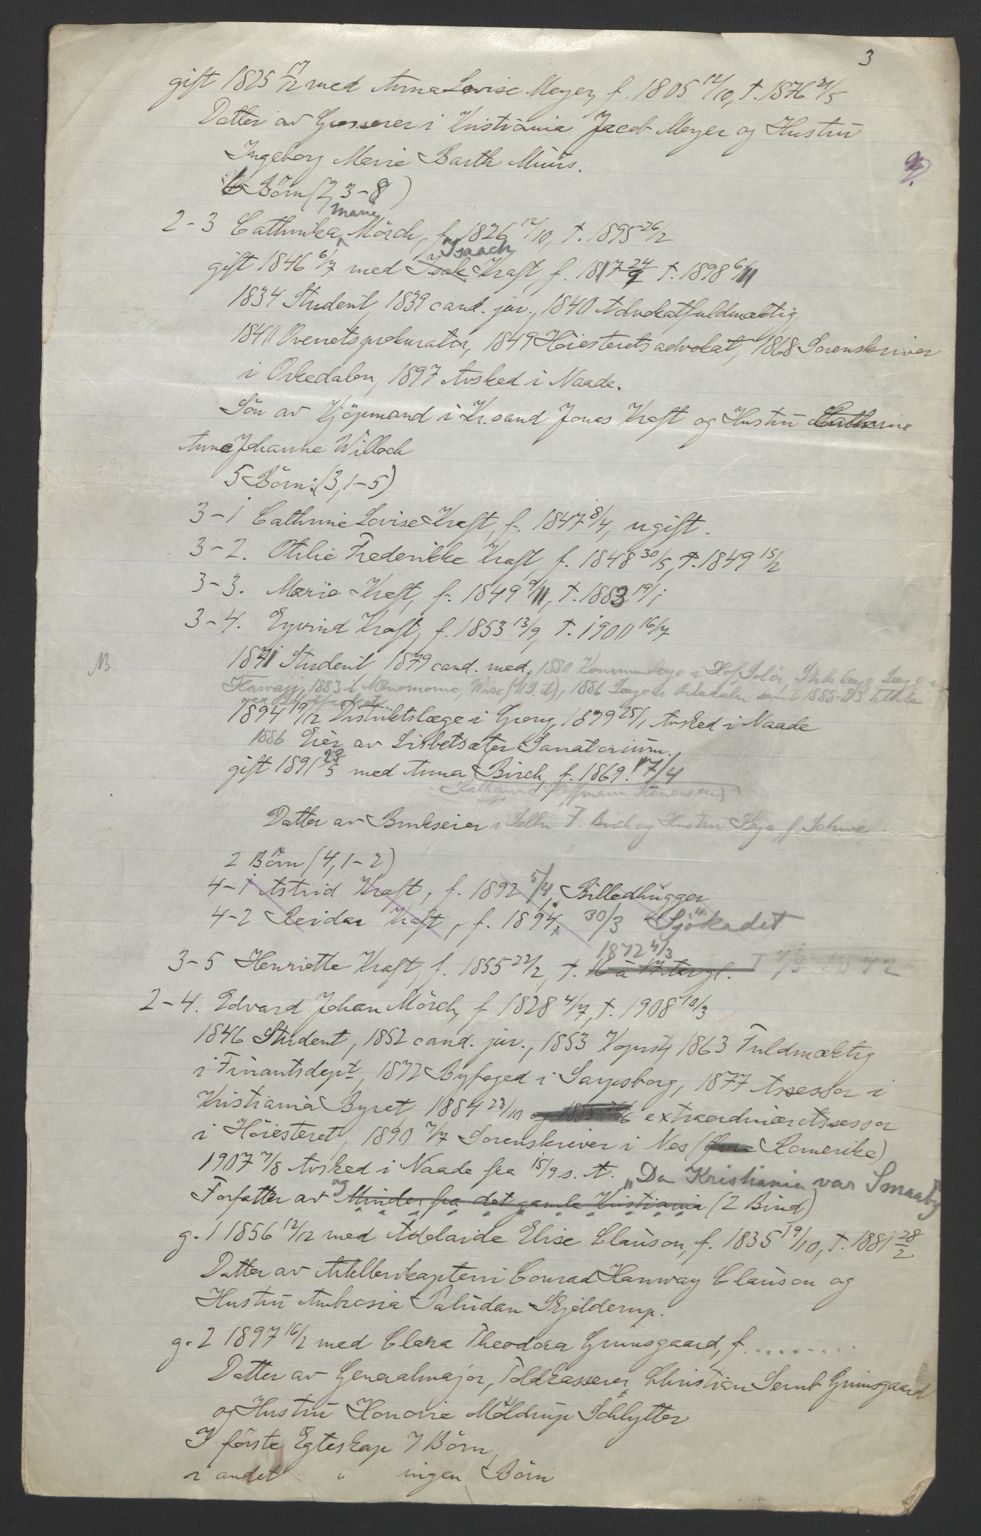 3
gift 1825 17/12 med Anna Lovise Meyer, f. 1805 12/10, †. 1876 21/5
Datter av Grosserer i Kristiania Jacob Meyer og Hustru
Ingeborg Marie Barth Muus.
6 Børn (2, 3-8)
Marie
2-3 Cathrika Mörch, f. 1826 12/10, †. 1895 26/2
Isaach
gift 1846 6/7 med Isak Kraft, f. 1817 24/9 †. 1898 6/11
1834 Student, 1839 cand. jur., 1840 Advokatfuldmægtig
1841 Overretsprokurator, 1849 Høiesteretsadvokat, 1868 Sorenskriver
i Orkedalen, 1897 Avsked i Naade.
Sön av Kjöpmand i Kr.sand Jonas Kraft og Hustru Cathrine
Anne Johanne Willoch
5 Börn: (3, 1-5)
3-1 Cathrine Lovise Kraft, f. 1847 8/4, ugift.
3-2. Othilie Frederikke Kraft, f. 1848 30/5, †. 1849 15/2
3-3. Marie Kraft, f. 1849 9/11, †. 1883 19/1
3-4. Eyvind Kraft, f. 1853 13/9, †. 1900 16/7
NB
1871 Student 1879 cand. med. 1880 Kommunelæge i Hof Solör,
Hawaii, 1883 i Menomonie, Wisc (U.S.A), 1886 Læge i Orkedalen samt 1888-93
1894 19/12 Distriktslæge i Grong, 1899 25/1 Avsked i Naade
1886 Eier av Lisbetsæter Sanatorium.
gift 1891 28/5 med Anna Birch, f. 1869. 17/4
Datter av Brukseier i Selbu F. Birch og Hustru
2 Börn (4, 1-2)
4-1 Astrid Kraft, f. 1892 5/4, Billedhugger
4-2 Reidar Kraft, f. 1894, 30/3 Sjökadet
1872 4/3
3-5 Henriette Kraft f. 1855 22/2, †. 16 a 17 Aar gl. † 4/3 1872
2-4. Edvard Johan Mörch, f 1828 4/7, †. 1908 10/3
1846 Student, 1852 cand. jur., 1853 Kopist, 1863 Fuldmægtig
i Finantsdept, 1872 Byfoged i Sarpsborg, 1877 Assessor i
Kristiania Byret, 1884 23/10 extraordinær Assessor
i Höiesteret, 1890 7/7 Sorenskriver i Nes (Romerike)
1907 7/8 Avsked i Naade fra 15/9 s. A. „Da Kristiania var Smaaby
Forfatter av og Minder fra det gamle Kristiania (2 Bind)
g. 1 1856 12/12 med Adelaide Elise Clauson, f. 1835 19/10, †. 1881 28/2
Datter av Artillerikaptein Conrad Hanway Clauson og
Hustru Ambrosia Paludan Skjelderup.
g. 2 1897 16/2 med Clara Theodora Grimsgaard, f. .........
Datter av Generalmajor, Toldkasserer Christian Bernt Grimsgaard
og Hustru Honorie Moldrup Schlytter
I förste Egteskap 7 Börn,
i andet " ingen Börn